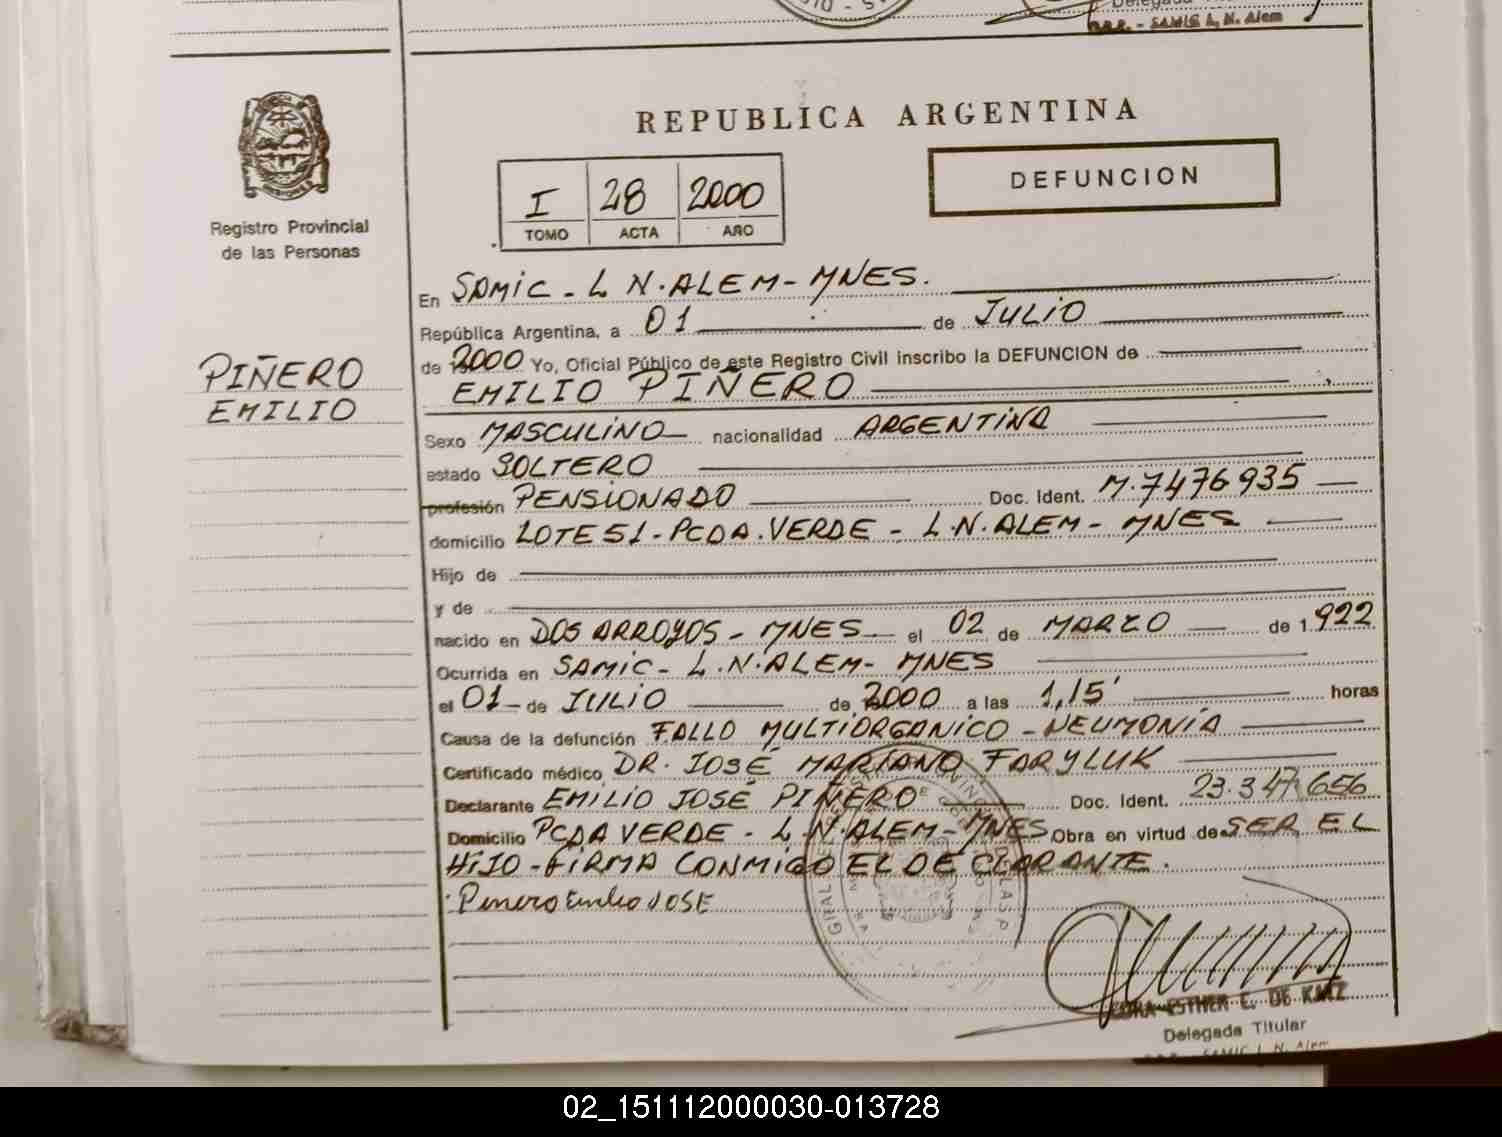 Delegada
R.P.P. - SAMIC L. N. Alem
REPUBLICA ARGENTINA
DEFUNCION
I 28 2000
TOMO ACTA AÑO
Registro Provincial
de las Personas
PIÑERO
EMILIO
En SAMIC - L N. ALEM - MNES.
República Argentina, a 01 de JULIO
de 2000 Yo, Oficial Público de este Registro Civil inscribo la DEFUNCION de
EMILIO PIÑERO
Sexo MASCULINO nacionalidad ARGENTINA
estado SOLTERO
profesión PENSIONADO Doc. Ident. M. 7476935
domicilio LOTE 51 - PCDA. VERDE - L. N. ALEM - MNES
Hijo de
y de
nacido en DOS ARROYOS - MNES el 02 de MARZO de 1.922
Ocurrida en SAMIC - L. N. ALEM - MNES
el 01 - de JULIO de 2000 a las 1,15' horas
Causa de la defunción FALLO MULTIORGANICO - NEUMONÍA
Certificado médico DR. JOSÉ MARIANO FARYLUK
Declarante EMILIO JOSÉ PIÑERO Doc. Ident. 23.347.656
Domicilio PCDA VERDE - L. N. ALEM - MNES Obra en virtud de SER EL
HIJO - FIRMA CONMIGO EL DECLARANTE.
Pinero Emilio JOSE
ESTHER E. DE KATZ
Delegada Titular
SAMIC L. N. Alem
02_151112000030-013728